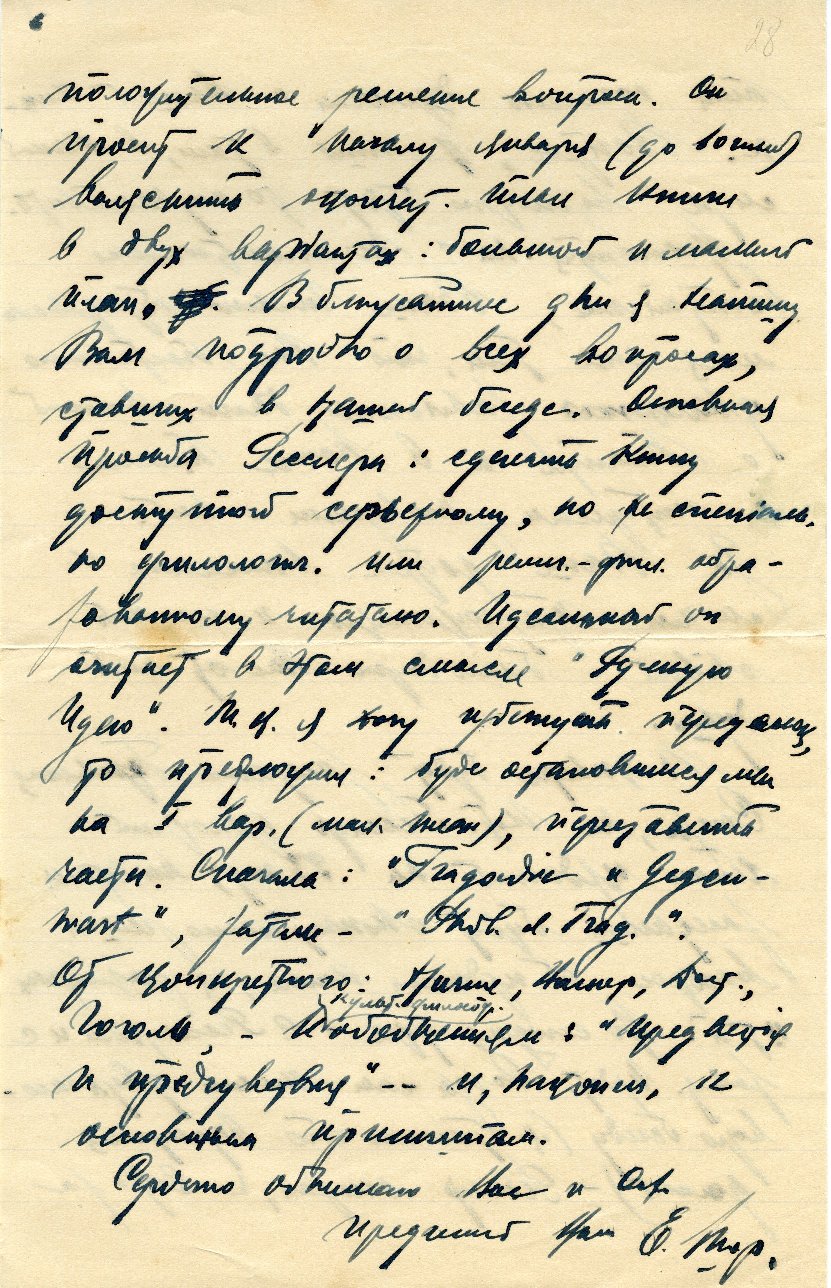 28
положительное решение вопроса. Он
просит к началу января (до войны)
выяснить окончат. план книги
в двух вариантах: большой и малый
план. В ближайшие дни я напишу
Вам подробно о всех вопросах,
ставших в нашей беседе. Основная
просьба Ресслера: сделать книгу
доступной серьезному, но не специаль-
но филологич. или религ.-фил. обра-
зованному читателю. Идеальной он
считает в этом смысле "Русскую
Идею". Т.к. я хочу избегнуть
то предложил: буде остановимся мы
на I вар. (мал. план), переставить
части. Сначала: "Трагедия и Gegen-
wart", затем - "
От конкретного: Ницше, Вагнер, Дост.,
Гоголь, - к обобщениям: "Предвестия
и предчувствия" -- и, наконец, к
основным принципам.
Сердечно обнимаю Вас и
Преданный Вам Е. Шор.